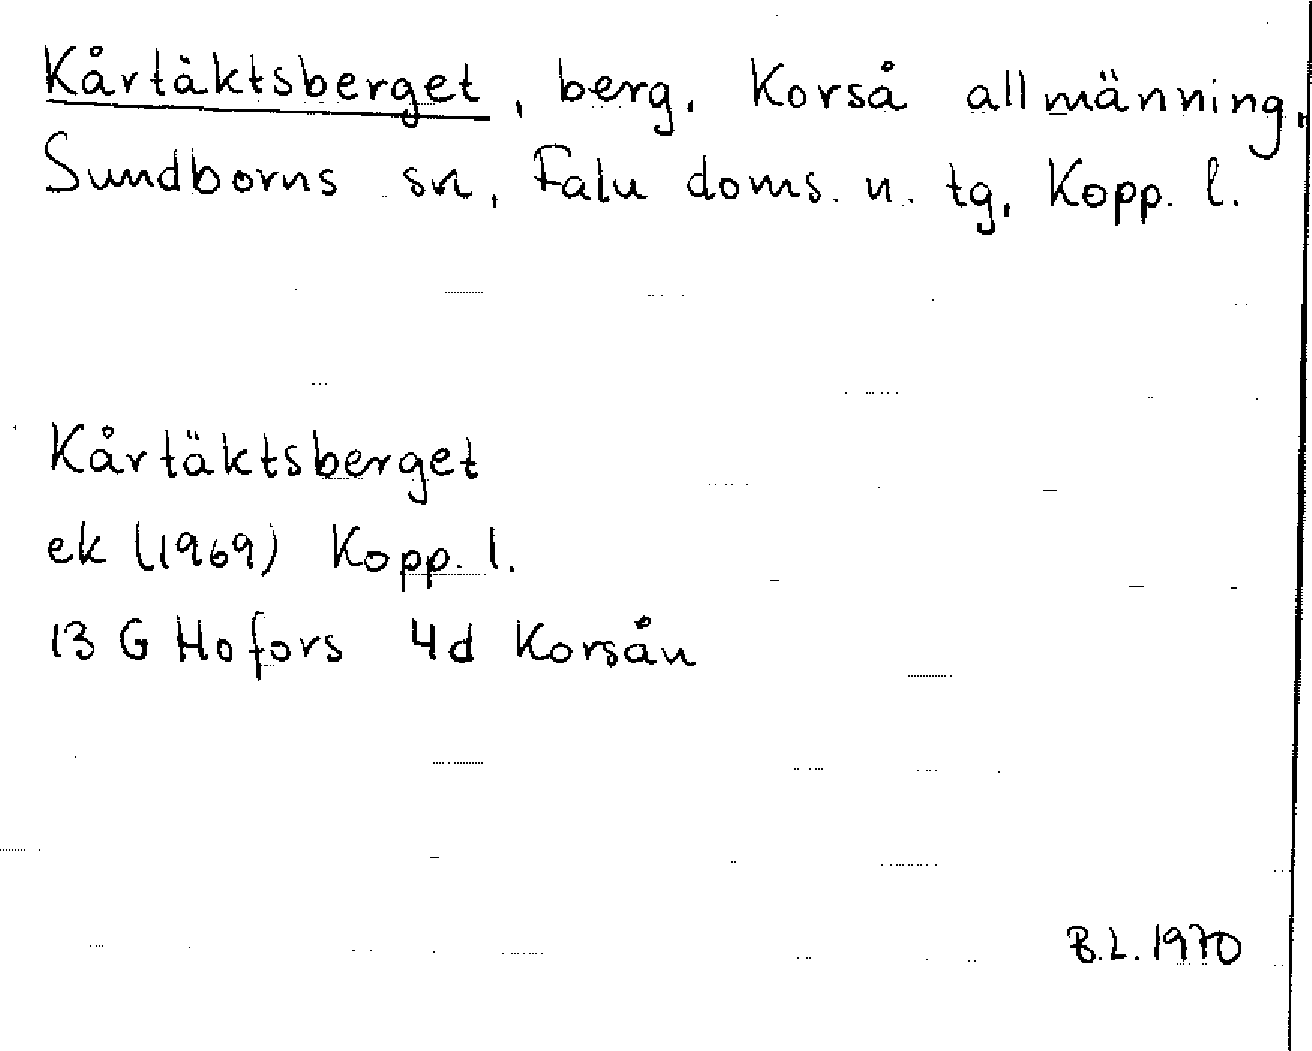 Kårtäktsberget, berg, Korså allmänning,
Sundborns sn, Falu doms. n. tg, Kopp. l.
Kårtäktsberget
ek (1969) Kopp. l.
13 G Hofors 4d Korsån
B.L. 1970